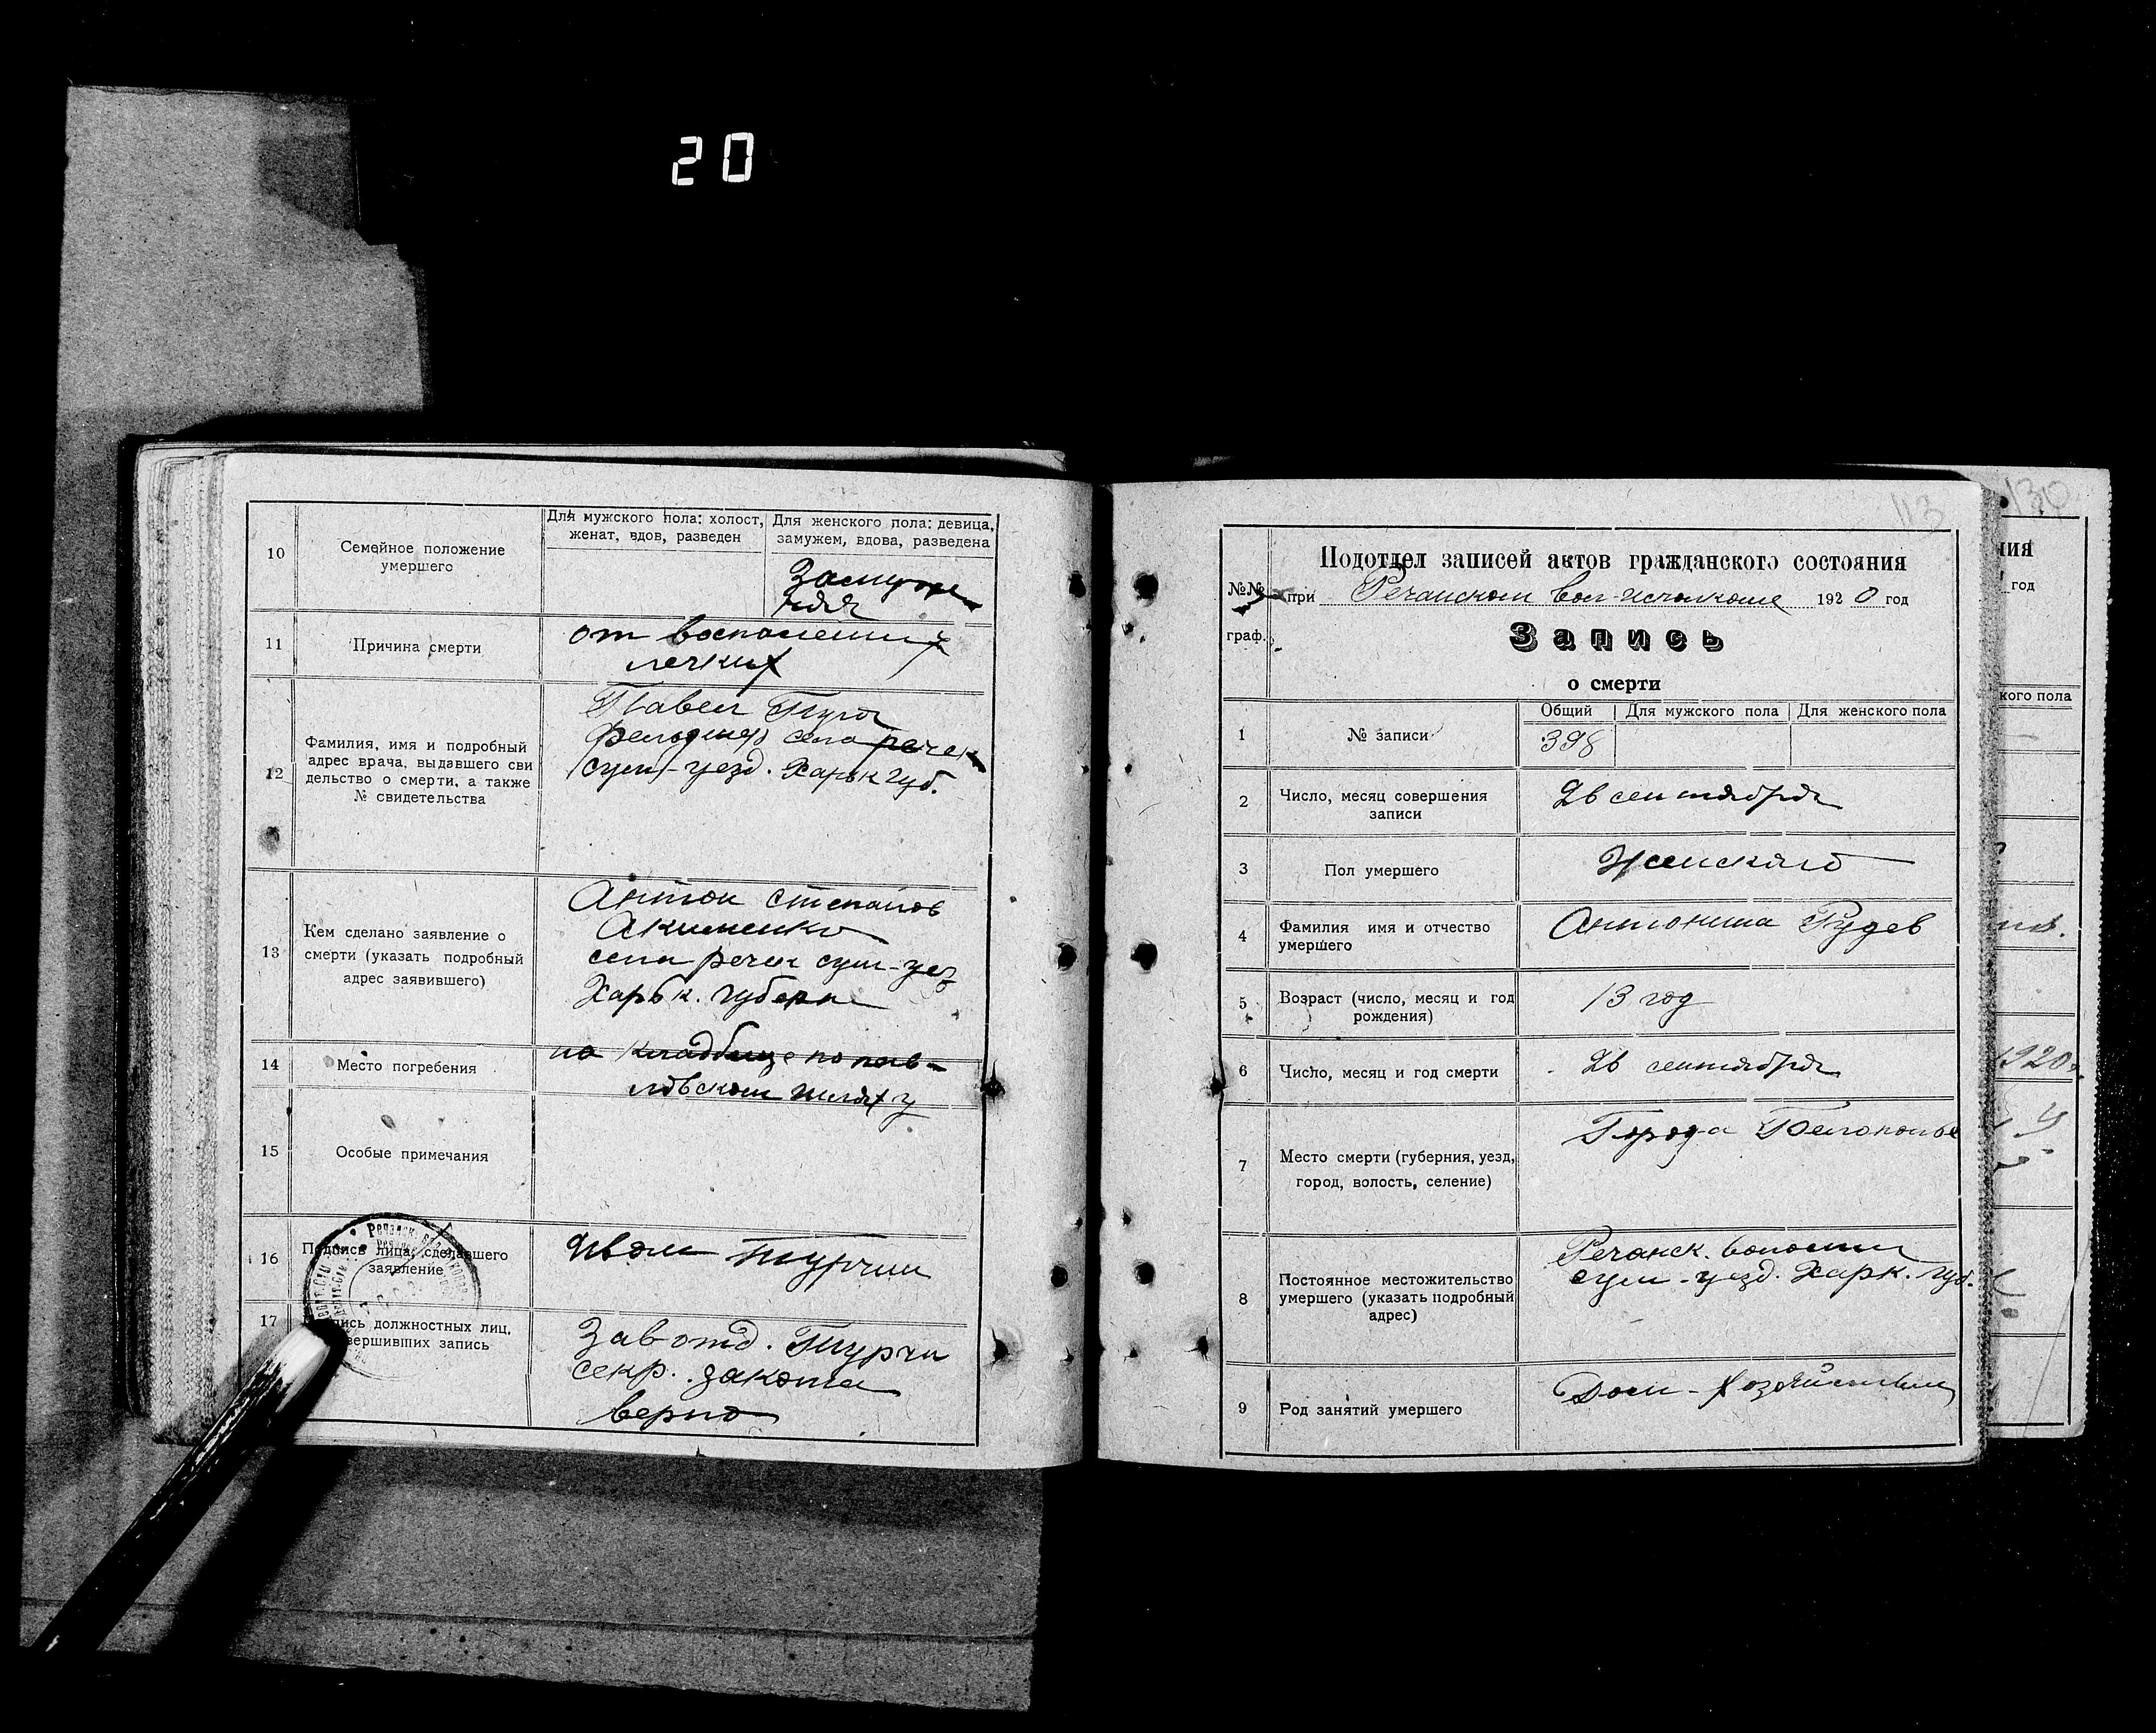 20
10
Семейное положение
умершего
Для мужского пола: холост,
женат, вдов, разведен
Для женского пола: девица,
замужем, вдова, разведена
Замуже
няя
11
Причина смерти
от воспаления
легких
12
Фамилия, имя и подробный
адрес врача, выдавшего сви
дельство о смерти, а также
№ свидетельства
Павел
фельдшер села речек
сум-уезд. Харьк губ.
13
Кем сделано заявление о
смерти (указать подробный
адрес заявившего)
Антон Степанов
Акименко
села речек сум-уез
Харьк. губерн
14
Место погребения
на кладбище по пав-
ловском шляху
15
Особые примечания
16
Подпись лица, сделавшего
заявление
Иван Турчин
17
пись должностных лиц,
вершивших запись
Зав отд. Турчи
секр.
верно
113
130
№№
граф.
Подотдел записей актов гражданского состояния
при Речанском вол-исполкоме 1920 год
Запись
о смерти
1
№ записи
Общий
Для мужского пола
Для женского пола
398
2
Число, месяц совершения
записи
26 сентября
3
Пол умершего
Женскаго
4
Фамилия имя и отчество
умершего
Антонина
5
Возраст (число, месяц и год
рождения)
13 год
6
Число, месяц и год смерти
26 сентября
7
Место смерти (губерния, уезд,
город, волость, селение)
Города Белополье
8
Постоянное местожительство
умершего (указать подробный
адрес)
Речанск. волости
сум-уезд. Харк. губ.
9
Род занятий умершего
Дом-хозяйствин
ния
год
кого пола
1920